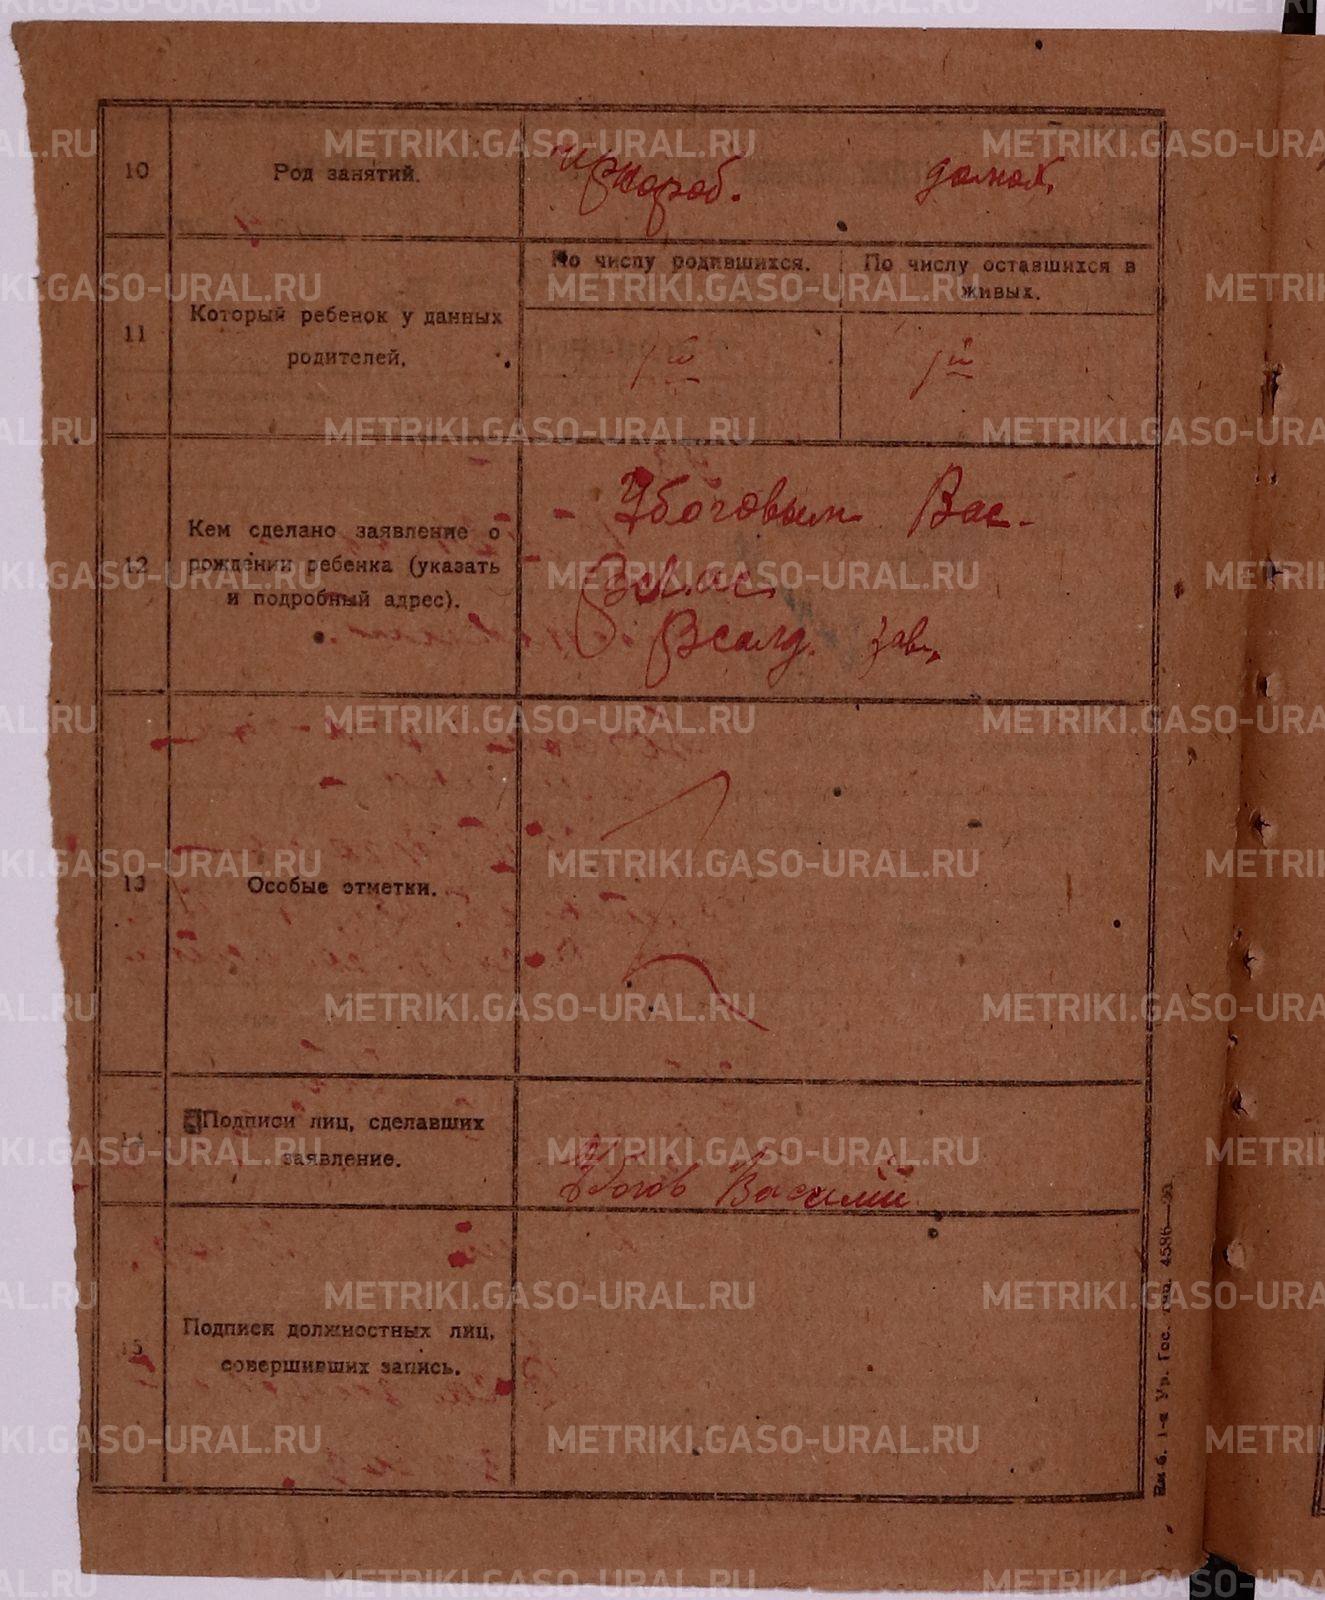 10 Род занятий. чернораб. домохоз.
11 Который ребенок у данных родителей.
По числу родившихся. По числу оставшихся в живых.
1й 1й
12 Кем сделано заявление о рождении ребенка (указать и подробный адрес).
Убоговым Вас.
зав.
13 Особые отметки.
14 Подписи лиц, сделавших заявление.
Убогов Василий
15 Подписи должностных лиц, совершивших запись.
1-я Ур. Гос. тип. 4586
METRIKI.GASO-URAL.RU